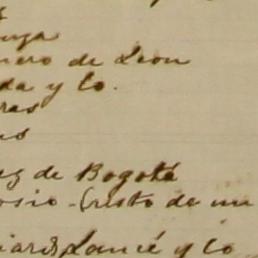 nero de Leon
da y Co.
ras
ez de Bogotá
osio - (resto de un
Lancé y Co